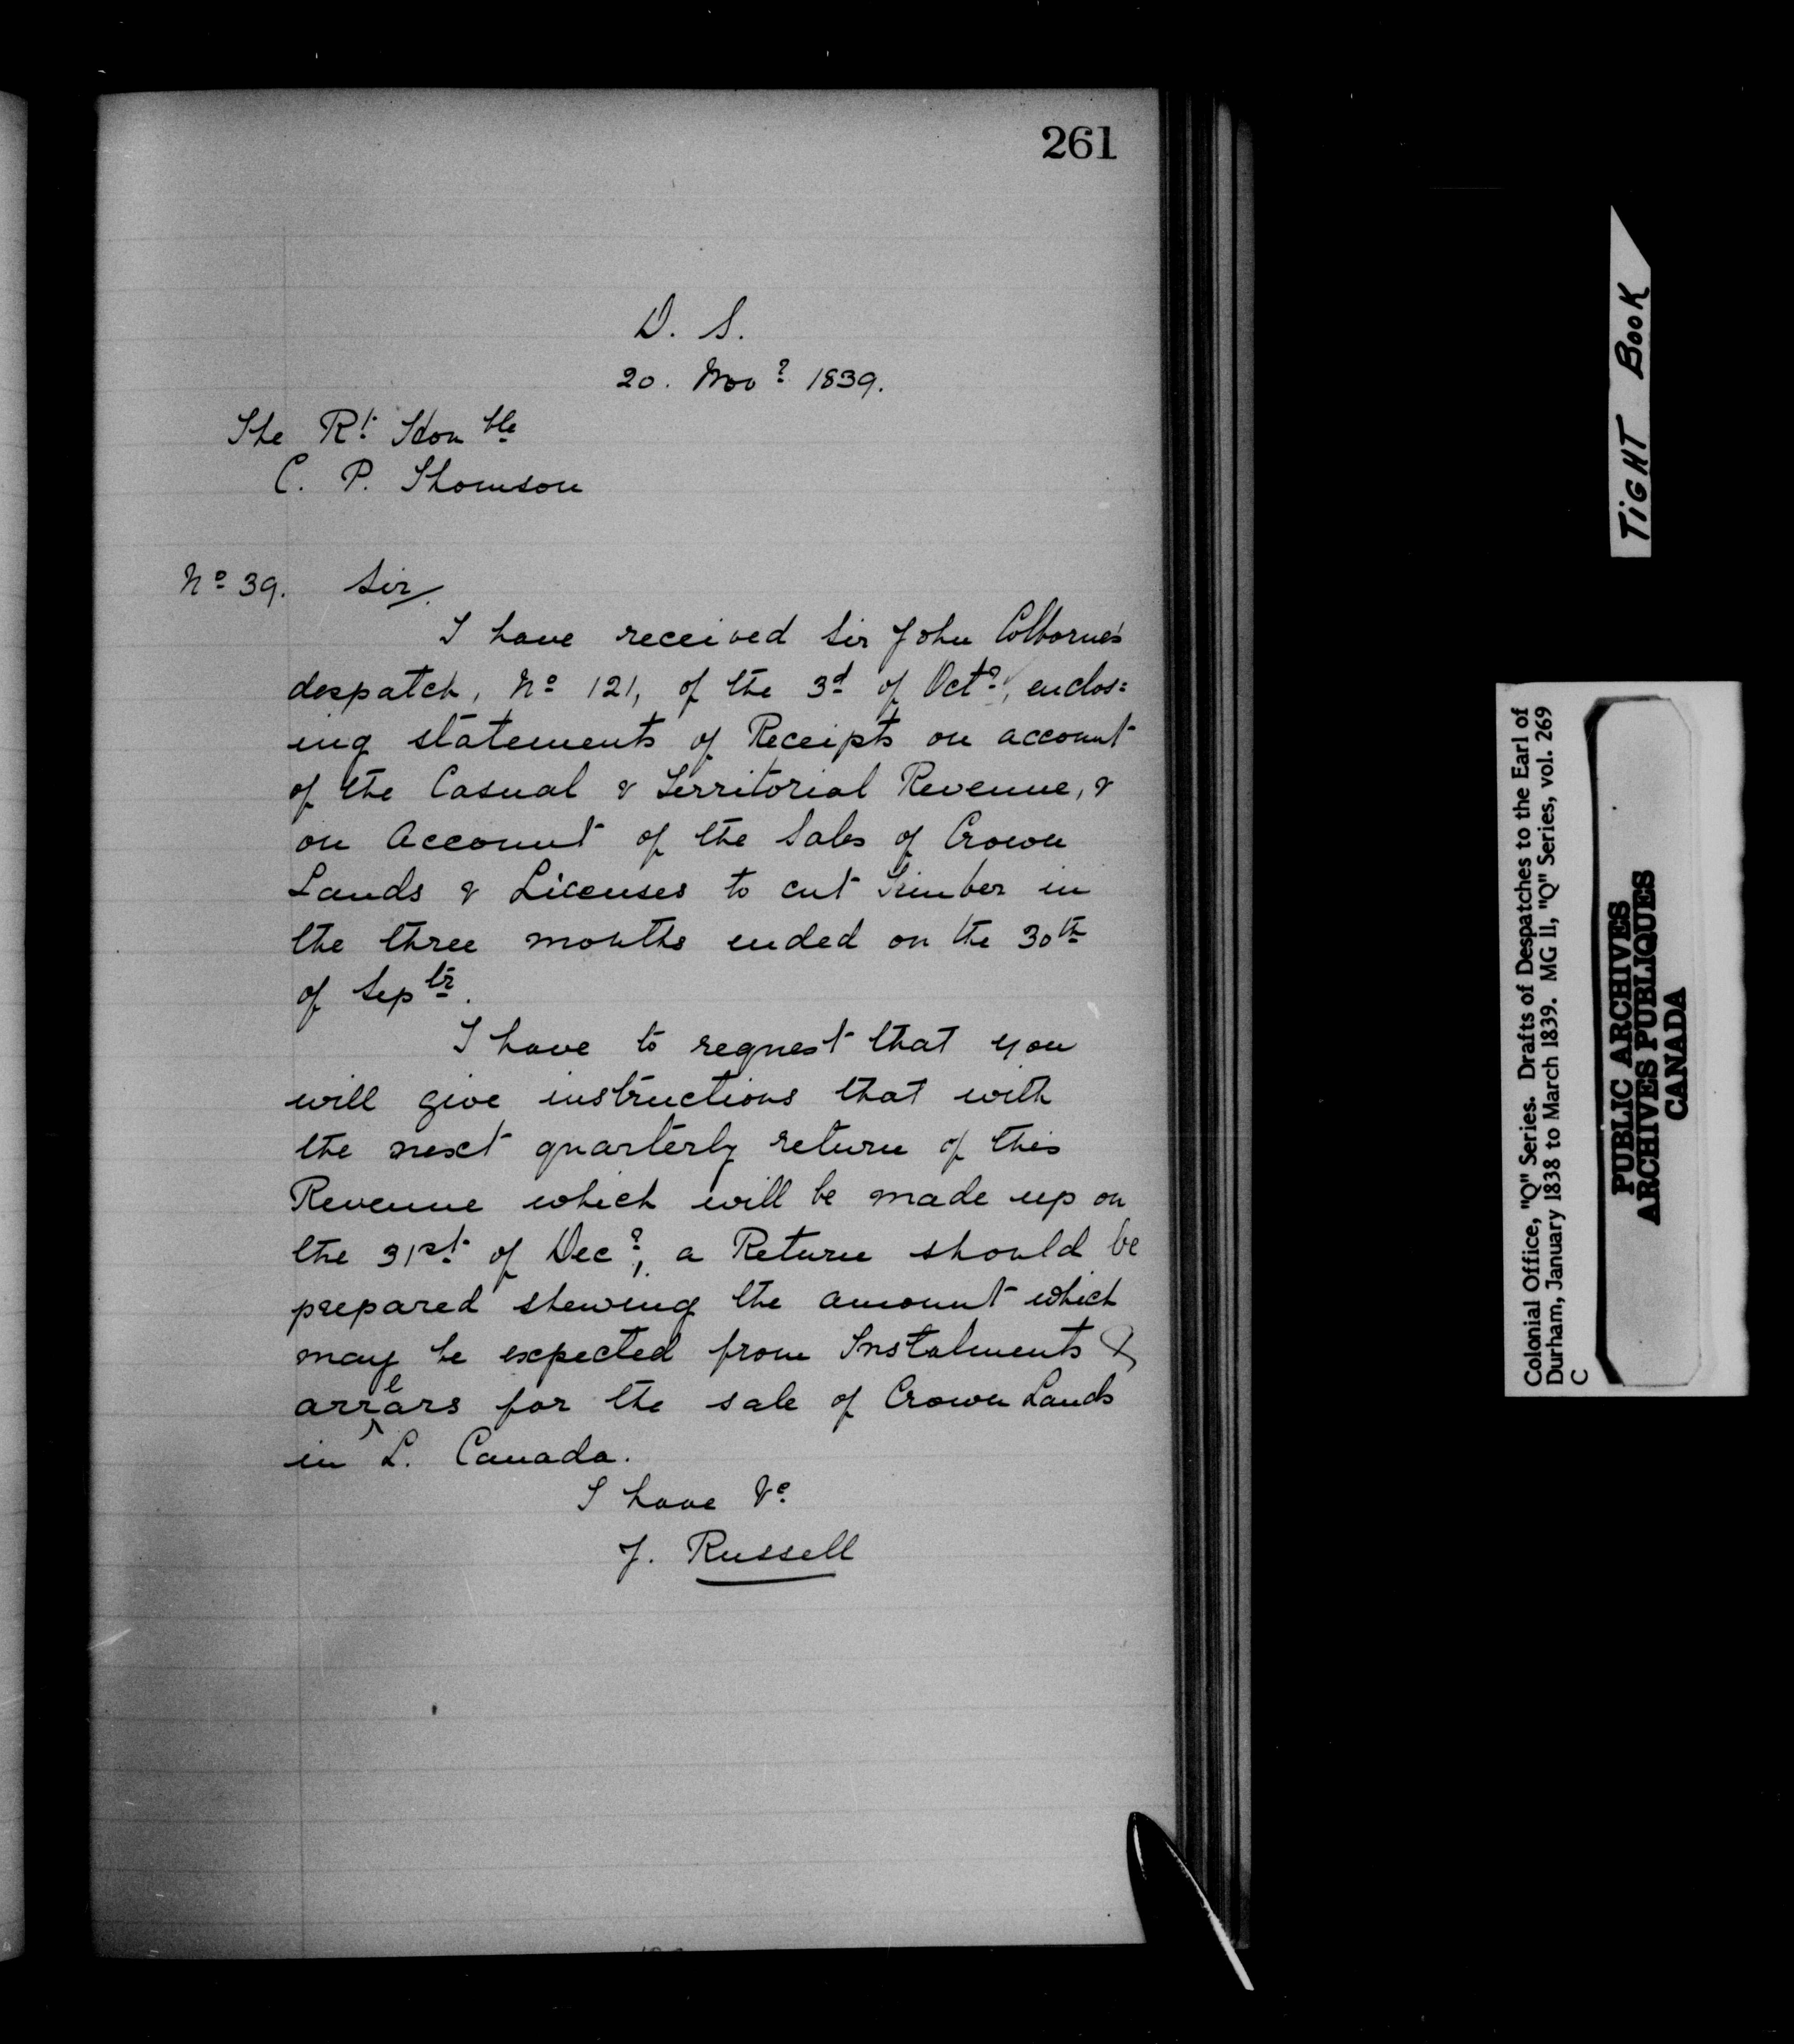 261
D. S.
20. Nov? 1839.
The Rt. Honble
C. P. Thomson
No 39. Sir,
I have received Sir John Colborne's
despatch, No 121, of the 3d of Oct?, enclos=
ing statements of Receipts on account
of the Casual & Territorial Revenue, &
on Account of the Sales of Crown
Lands & Licenses to cut Timber in
the three months ended on the 30th
of Septr.
I have to request that you
will give instructions that with
the next quarterly return of this
Revenue which will be made up on
the 31st of Dec?, a Return should be
prepared shewing the amount which
may be expected from Instalments &
arrears for the sale of Crown Lands
in L. Canada.
I have &c
J. Russell
TIGHT BOOK
Colonial Office, "Q" Series. Drafts of Despatches to the Earl of
Durham, January 1838 to March 1839. MG 11, "Q" Series, vol. 269
C
PUBLIC ARCHIVES
ARCHIVES PUBLIQUES
CANADA